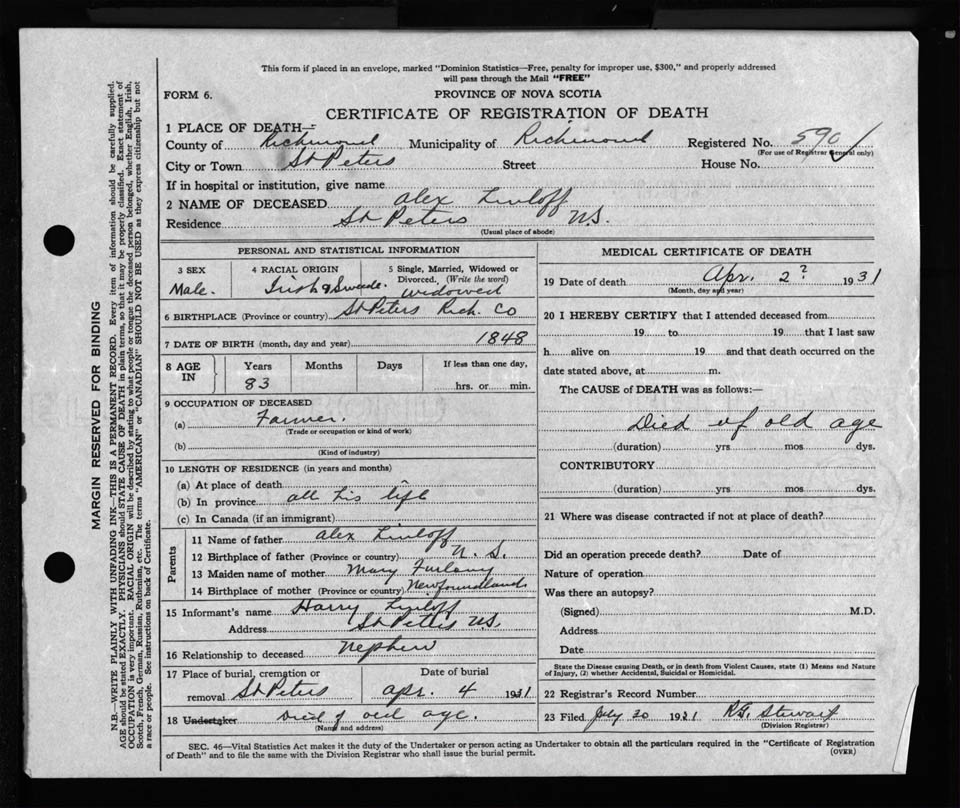 This form if placed in an envelope, marked "Dominion Statistics—Free, penalty for improper use, $300," and properly addressed
will pass through the Mail "FREE"
FORM 6.
PROVINCE OF NOVA SCOTIA
CERTIFICATE OF REGISTRATION OF DEATH
1 PLACE OF DEATH—
County of Richmond Municipality of Richmond Registered No. 590
(For use of Registrar General only)
City or Town St Peters Street House No.
If in hospital or institution, give name
2 NAME OF DECEASED Alex
Residence St Peters N.S.
(Usual place of abode)
PERSONAL AND STATISTICAL INFORMATION
3 SEX
Male.
4 RACIAL ORIGIN
Irish & Swede.
5 Single, Married, Widowed or
Divorced. (Write the word)
widowed
6 BIRTHPLACE (Province or country) St Peters Rich. Co
7 DATE OF BIRTH (month, day and year) 1848
8 AGE IN
Years Months Days If less than one day,
83 hrs. or min.
9 OCCUPATION OF DECEASED
(a) Farmer.
(Trade or occupation or kind of work)
(b)
(Kind of industry)
10 LENGTH OF RESIDENCE (in years and months)
(a) At place of death
(b) In province all his life
(c) In Canada (if an immigrant)
Parents
11 Name of father Alex
12 Birthplace of father (Province or country) N. S.
13 Maiden name of mother Mary Furlong
14 Birthplace of mother (Province or country) Newfoundland
15 Informant's name Harry
Address St Peters N.S.
16 Relationship to deceased Nephew
17 Place of burial, cremation or
removal St Peters
Date of burial
Apr. 4 1931
18 Undertaker Died of old age.
(Name and address)
MEDICAL CERTIFICATE OF DEATH
19 Date of death Apr. 2? 1931
(Month, day and year)
20 I HEREBY CERTIFY that I attended deceased from
19 to 19 that I last saw
h alive on 19 and that death occurred on the
date stated above, at m.
The CAUSE of DEATH was as follows:—
Died of old age
(duration) yrs mos dys.
CONTRIBUTORY
(duration) yrs mos dys.
21 Where was disease contracted if not at place of death?
Did an operation precede death? Date of
Nature of operation
Was there an autopsy?
(Signed) M.D.
Address
Date
State the Disease causing Death, or in death from Violent Causes, state (1) Means and Nature
of Injury, (2) whether Accidental, Suicidal or Homicidal.
22 Registrar's Record Number
23 Filed July 30 1931 Stewart
(Division Registrar)
SEC. 46—Vital Statistics Act makes it the duty of the Undertaker or person acting as Undertaker to obtain all the particulars required in the "Certificate of Registration
of Death" and to file the same with the Division Registrar who shall issue the burial permit.
(OVER)
MARGIN RESERVED FOR BINDING
N.B.—WRITE PLAINLY WITH UNFADING INK—THIS IS A PERMANENT RECORD. Every item of information should be carefully supplied.
AGE should be stated EXACTLY. PHYSICIANS should STATE CAUSE OF DEATH in plain terms, so that it may be properly classified. Exact statement of
OCCUPATION is very important. RACIAL ORIGIN will be described by stating to what people or tongue the deceased person belonged, whether English, Irish,
Scotch, French, German, Russian, Ruthenian, etc. The terms "AMERICAN" or "CANADIAN" SHOULD NOT BE USED as they express citizenship but not
a race or people. See instructions on back of Certificate.